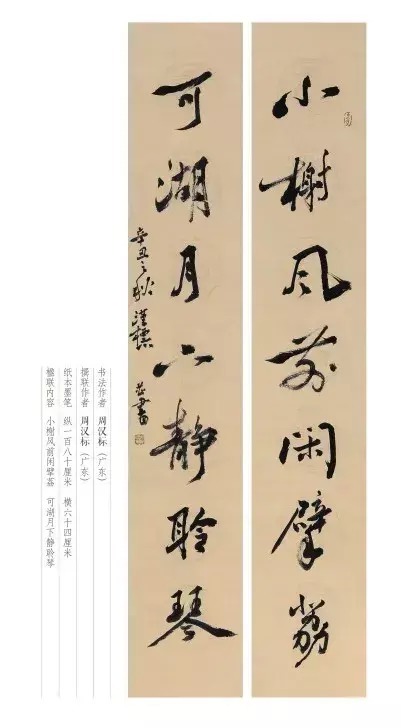 小榭风前闲擘荔
可湖月下静聆琴
辛丑之秋漢標並書
书法作者 周汉标（广东）
撰联作者 周汉标（广东）
纸本墨笔 纵一百八十厘米 横六十四厘米
楹联内容 小榭风前闲擘荔 可湖月下静聆琴